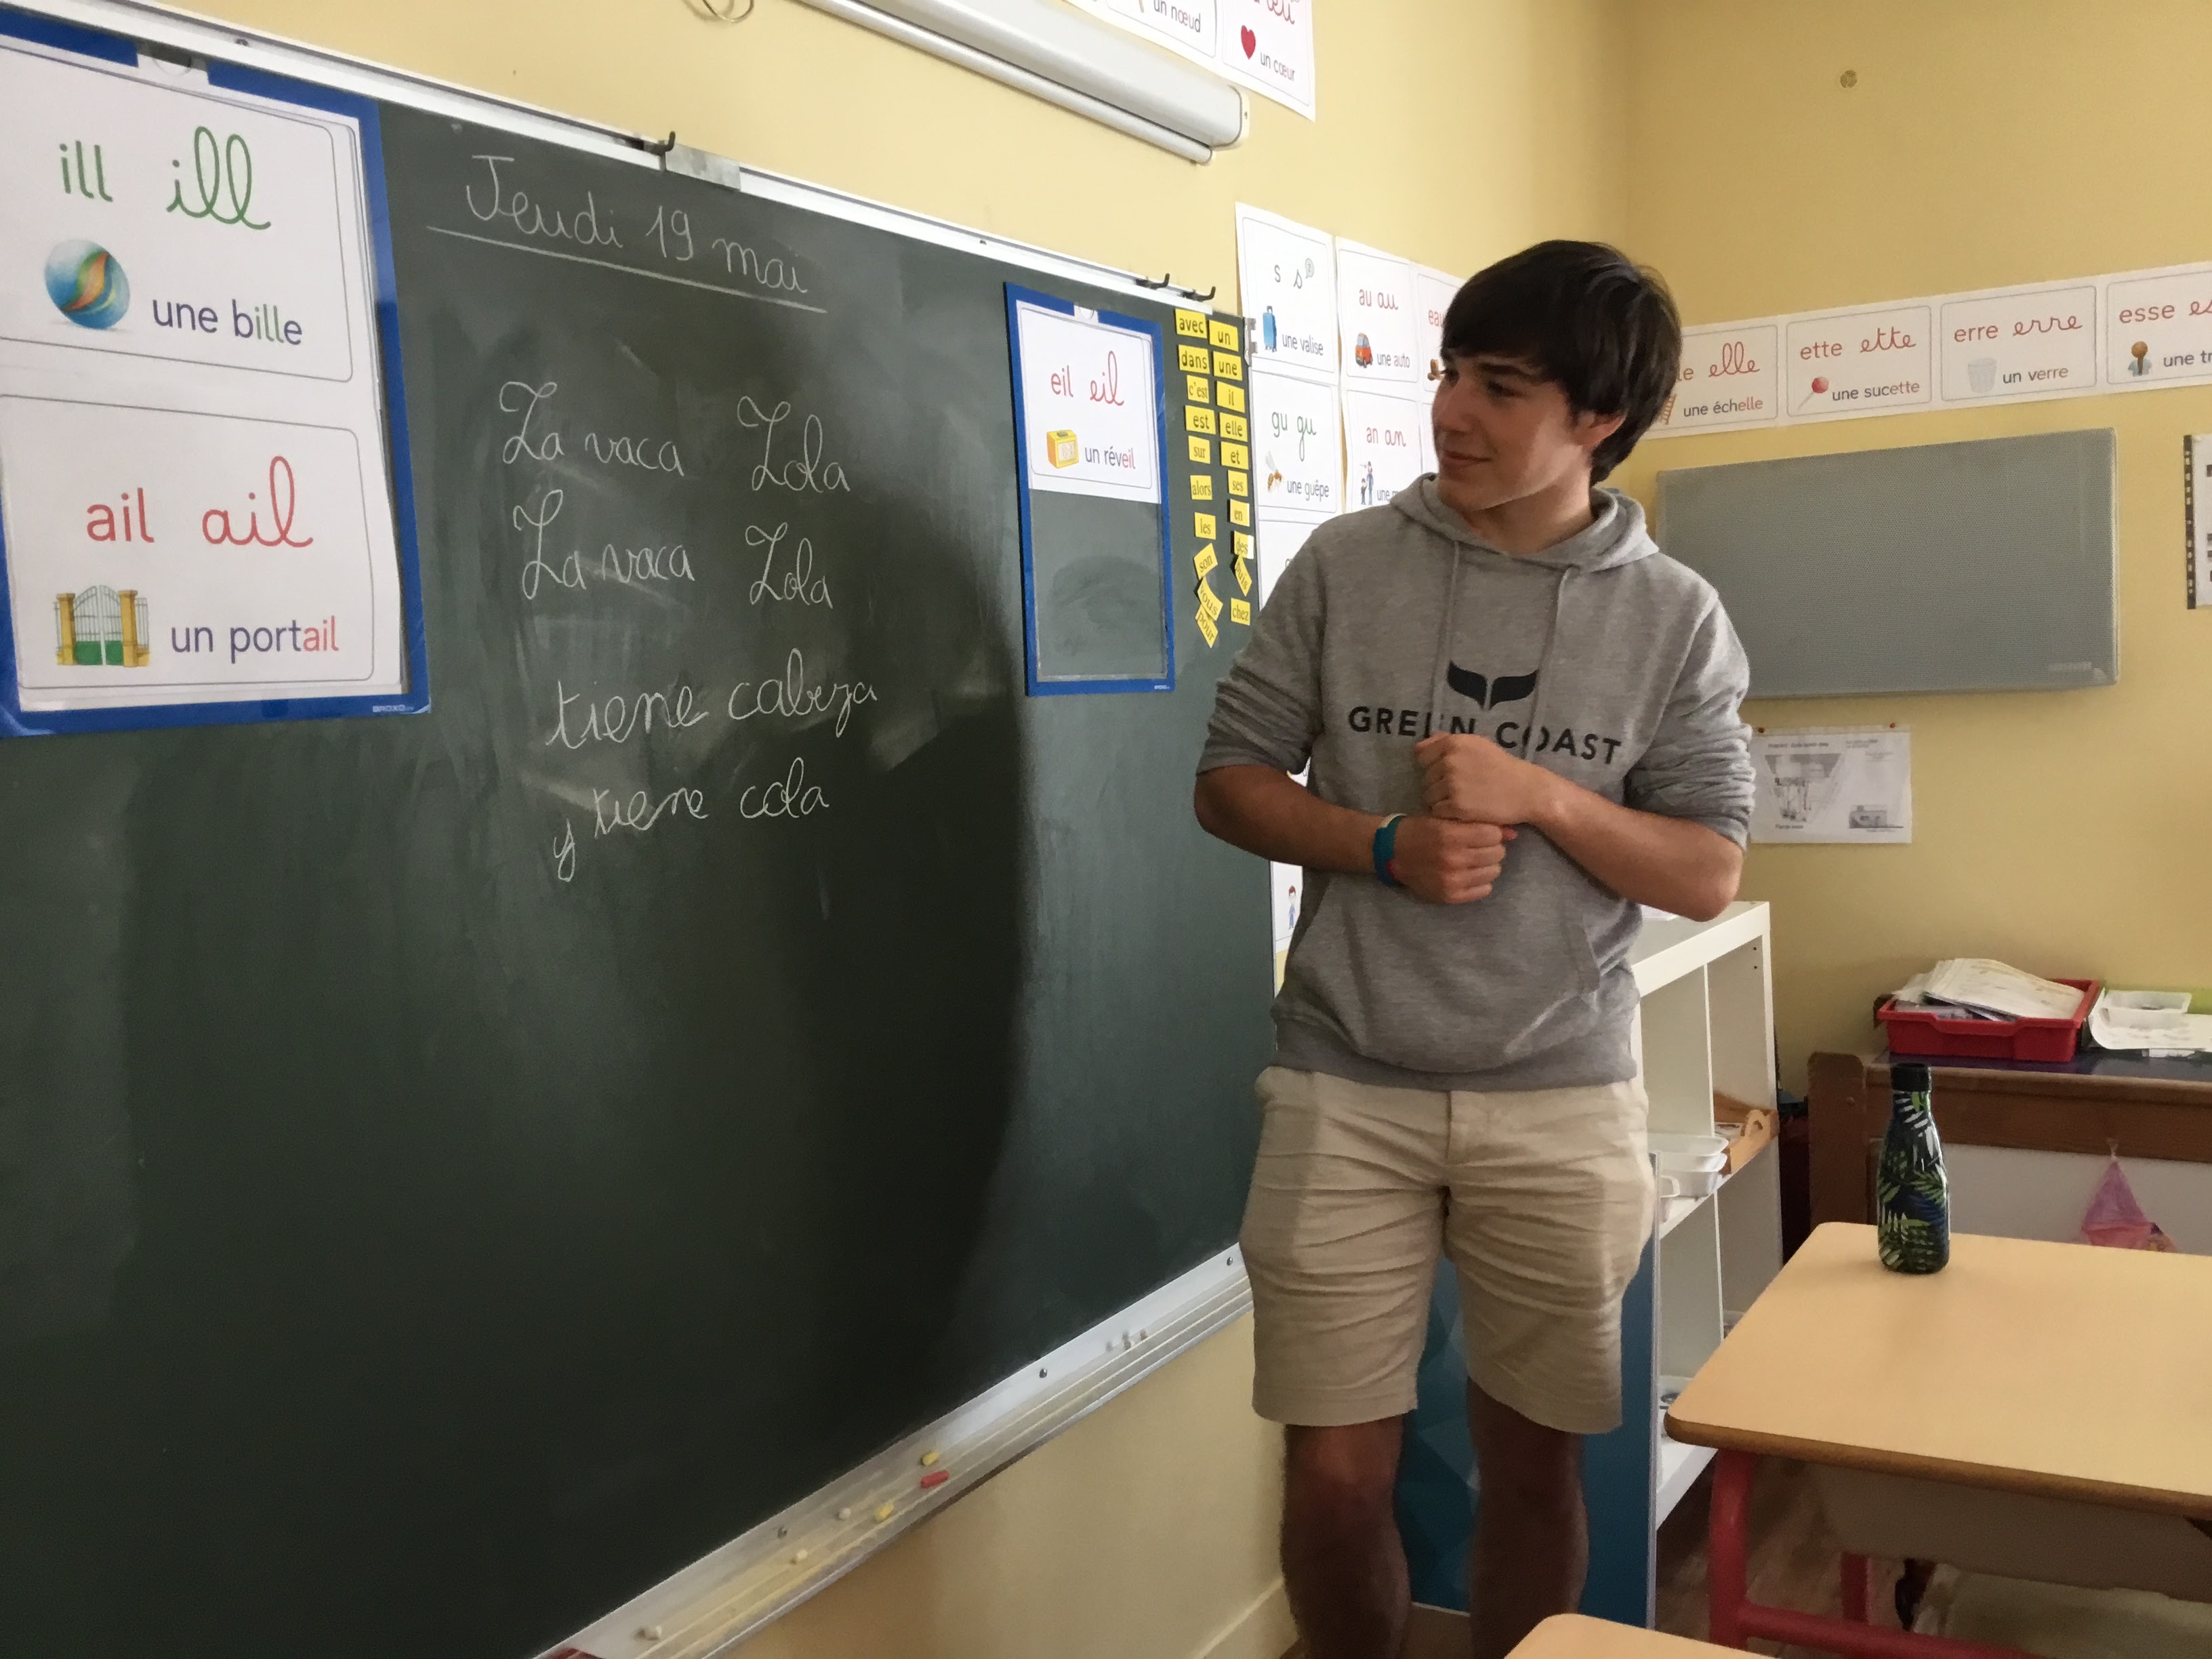 un nœud
un cœur
ill ill
une bille
ail ail
un portail
Jeudi 19 mai
La vaca Lola
La vaca Lola
tiene cabeza
y tiene cola
eil eil
un réveil
avec un
dans une
c'est il
est elle
sur et
alors ses
en
les des
son
vous
pour
chez
s s
une valise
au au
une auto
gu gu
une guêpe
an an
elle
une échelle
ette ette
une sucette
erre erre
un verre
esse
GREEN COAST